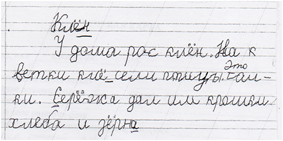 Клён
У дома рос клён. На к
ветки кле_сели птицы. Это гал-
ки. Серёжа дал им крошки
хлеба и зёрна